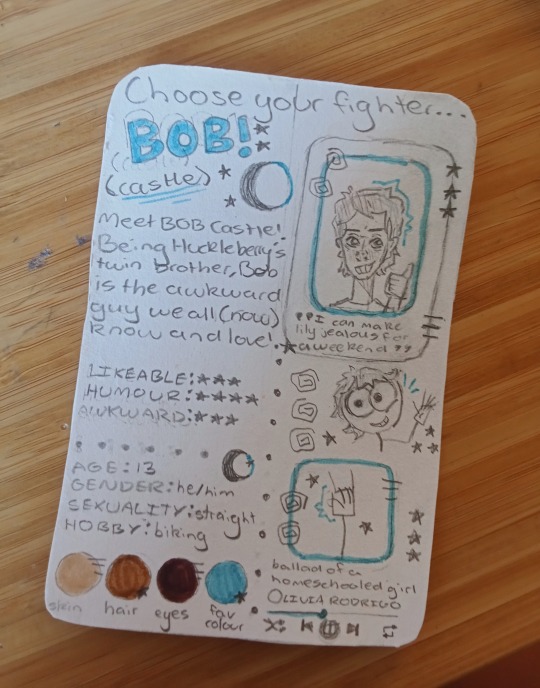 Choose your fighter...
BOB!
(castle)
Meet BOB Castle!
Being Huckleberry's
twin brother, Bob
is the awkward
guy we all (now)
know and love!
"I can make
lily jealous for
a weekend"
LIKEABLE:★★★
HUMOUR:★★★★
AWKWARD:★★★
AGE: 13
GENDER: he/him
SEXUALITY: straight
HOBBY: biking
skin
hair
eyes
fav
colour
ballad of a
homeschooled girl
OLIVIA RODRIGO